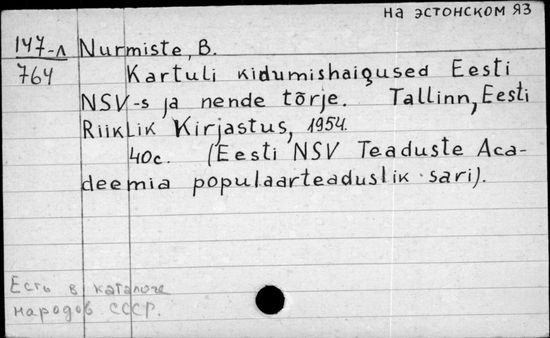 на эстонском яз
147-л Nurmiste, B.
764 Kartuli kidumishaigused Eesti
NSV-s ja nende tõrje. Tallinn, Eesti
Riiklik Kirjastus, 1954.
40c. (Eesti NSV Teaduste Aca-
deemia populaarteaduslik sari).
Есть в каталоге
народов СССР.